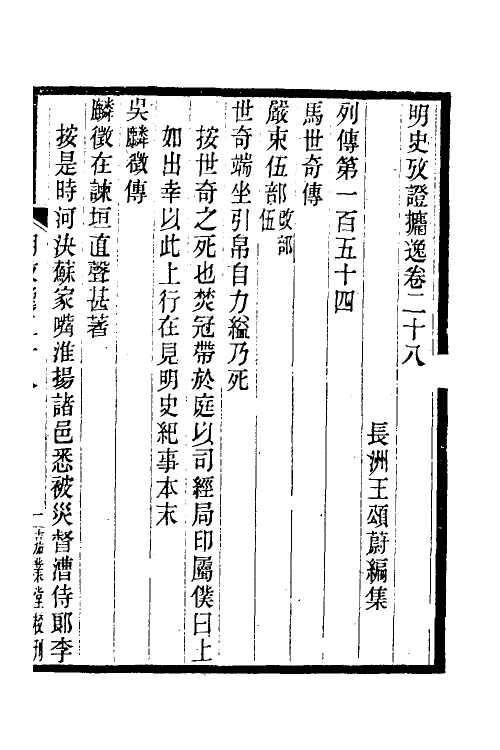 明史攷證攟逸卷二十八
長洲王頌蔚編集
列傳第一百五十四
馬世奇傳
嚴束伍部改部伍
世奇端坐引帛自力縊乃死
按世奇之死也焚冠帶於庭以司經局印屬僕曰上
如出幸以此上行在見明史紀事本末
吳麟徵傳
麟徵在諫垣直聲甚著
按是時河決蘇家嘴淮揚諸邑悉被災督漕侍郞李
一
嘉業堂校刊